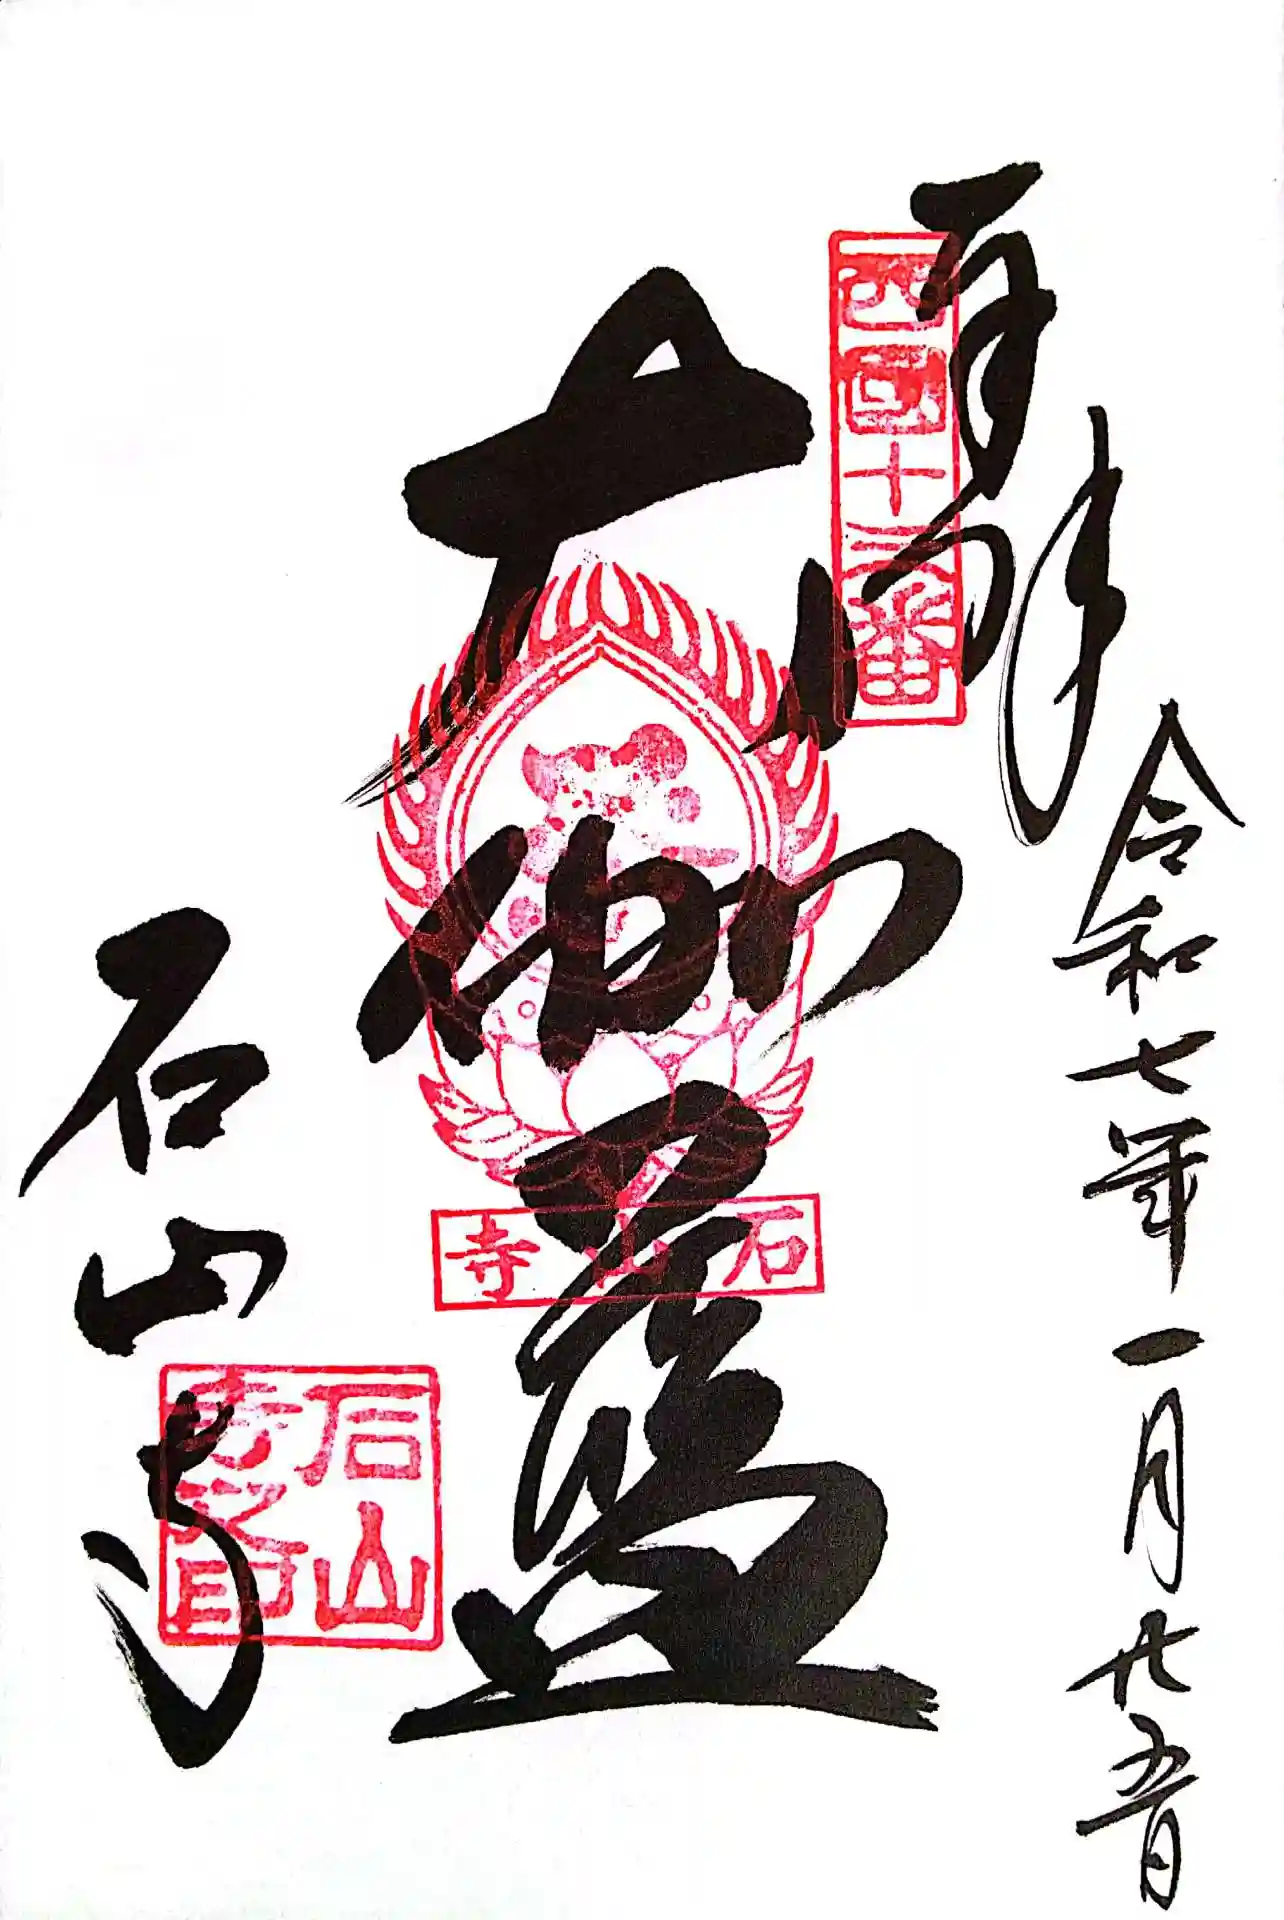 奉拝
令和七年一月廿五日
西國十三番
大伽藍
石山寺
石山寺
石山寺之印